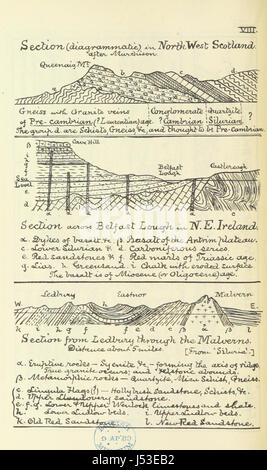 VIII.
Section (diagrammatic) in North West Scotland.
after Murchison
Queenaig Mt.
Gneiss with Granite veins | Conglomerate | Quartzite
of Pre-Cambrian (? Laurentian) age | ? Cambrian | Silurian
The group d are Schists, Gneiss, &c, and thought to be Pre-Cambrian
Cave Hill
Belfast Lough
Castlereagh
Sea Level
Section across Belfast Lough in N.E. Ireland.
α. Dykes of basalt &c. β Basalt of the Antrim plateau.
c. Lower Silurian d. Carboniferous series.
e. Red Sandstones f. Red marls of Triassic age.
g. Lias. h. Greensand. i Chalk with eroded surface
The basalt is of Miocene (or Oligocene) age.
Ledbury Eastnor Malvern
W. E.
Section from Ledbury through the Malverns.
Distance about 5 miles. [From 'Siluria'.]
α. Eruptive rocks – Syenite &c – forming the axis of ridge.
True granite occurs, and felstone abounds.
β. Metamorphic rocks – Quartzite, Mica Schist, Gneiss.
c. Lingula Flags (?) – Hollybush Sandstone, Schists, &c.
d. Upper Llandovery sandstone.
e. f. g. Lower & Upper Wenlock limestones and shale.
h. Lower Ludlow beds. i. Upper Ludlow beds.
k. Old Red Sandstone. l. New Red Sandstone.
alamy
J53EB2